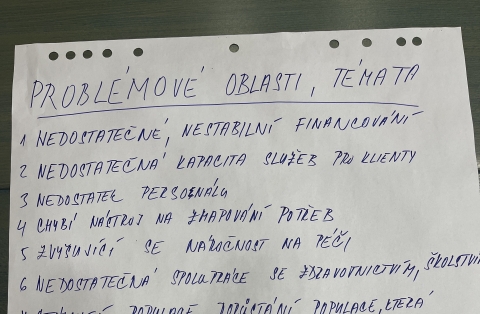 PROBLÉMOVÉ OBLASTI, TÉMATA
1 NEDOSTATEČNÉ, NESTABILNÍ FINANCOVÁNÍ
2 NEDOSTATEČNÁ KAPACITA SLUŽEB PRO KLIENTY
3 NEDOSTATEK PERSONÁLU
4 CHYBÍ NÁSTROJ NA ZMAPOVÁNÍ POTŘEB
5 ZVYŠUJÍCÍ SE NÁROČNOST NA PÉČI
6 NEDOSTATEČNÁ SPOLUPRÁCE SE ZDRAVOTNICTVÍM, ŠKOLSTVÍ
POPULACE, KTERÁ